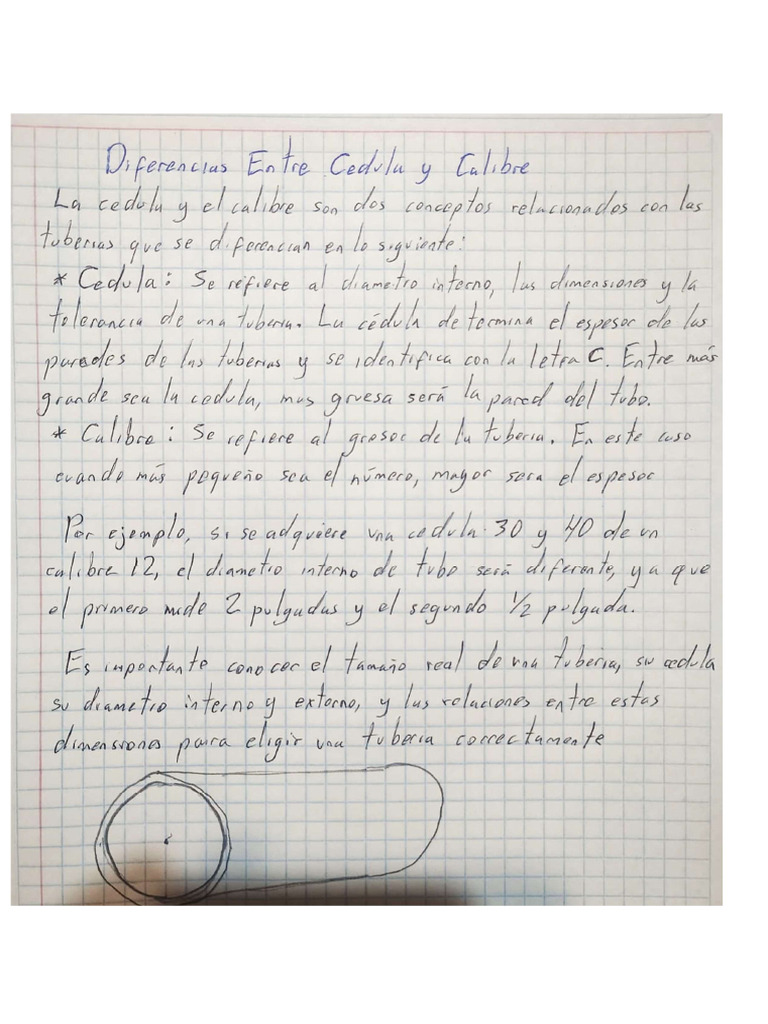 Diferencias Entre Cedula y Calibre
La cedula y el calibre son dos conceptos relacionados con las
tuberias que se diferencian en lo siguiente:
* Cedula: Se refiere al diametro interno, las dimensiones y la
tolerancia de una tuberia. La cédula determina el espesor de las
paredes de las tuberias y se identifica con la letra C. Entre más
grande sea la cedula, mas gruesa será la pared del tubo.
* Calibre: Se refiere al grosor de la tuberia. En este caso
cuando más pequeño sea el número, mayor sera el espesor
Por ejemplo, si se adquiere una cedula 30 y 40 de un
calibre 12, el diametro interno de tubo será diferente, ya que
el primero mide 2 pulgadas y el segundo 1/2 pulgada.
Es importante conocer el tamaño real de una tuberia, su cedula
su diametro interno y externo, y las relaciones entre estas
dimensiones para eligir una tuberia correctamente